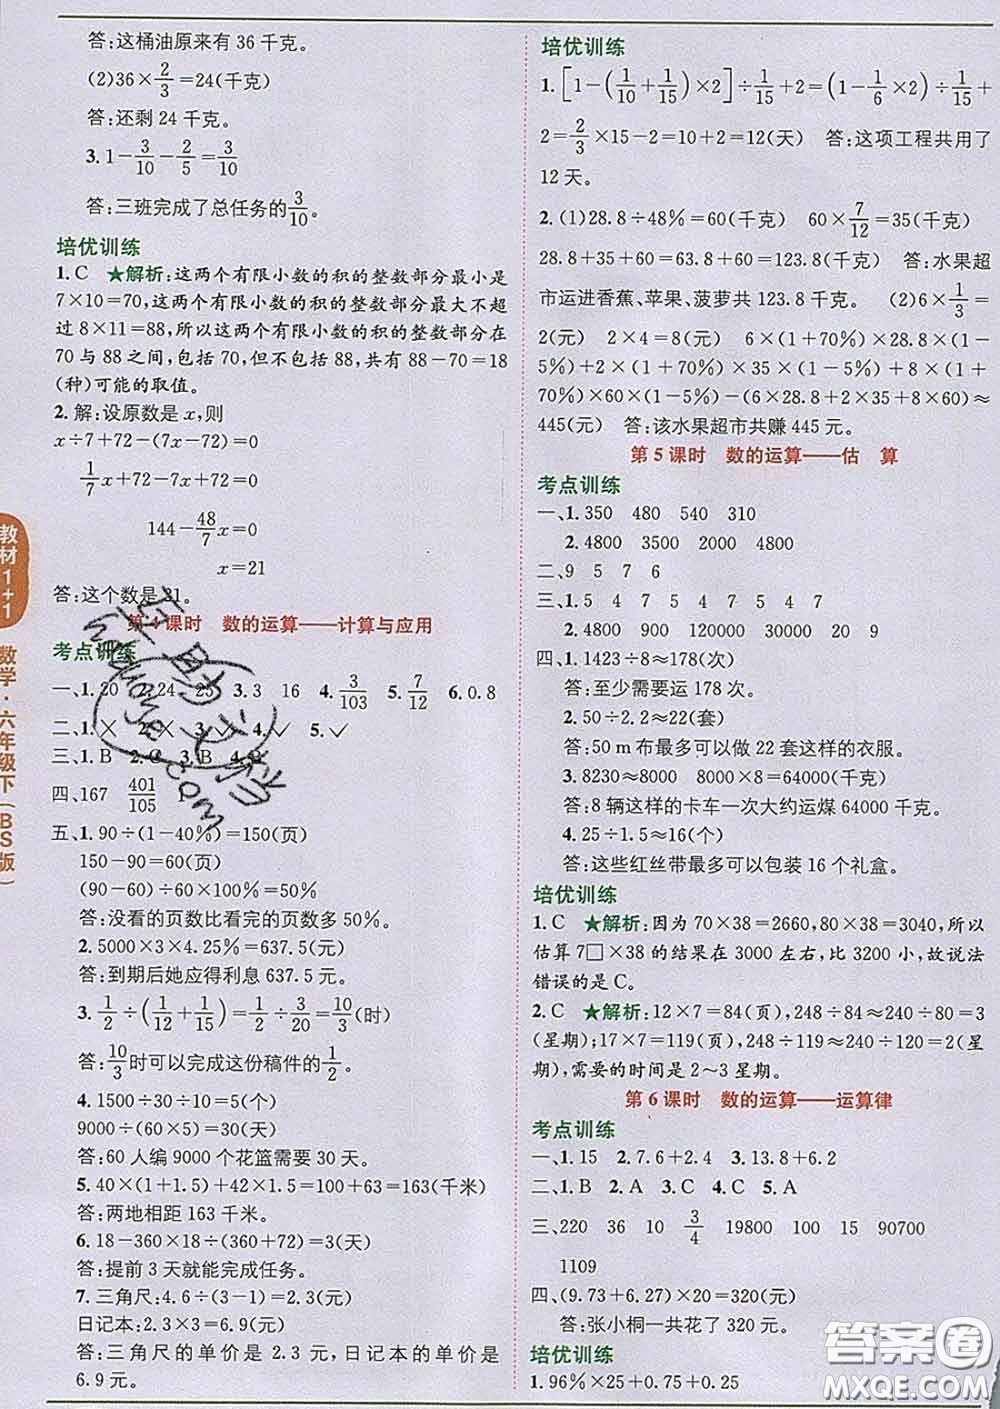 答:这桶油原来有 36 千克。
(2)36×2/3=24(千克)
答:还剩 24 千克。
3. 1-3/10-2/5=3/10
答:三班完成了总任务的3/10。
培优训练
1. C ★解析:这两个有限小数的积的整数部分最小是
7×10=70,这两个有限小数的积的整数部分最大不超
过 8×11=88,所以这两个有限小数的积的整数部分在
70 与 88 之间,包括 70,但不包括 88,共有 88-70=18
(种)可能的取值。
2. 解:设原数是 x,则
x÷7+72-(7x-72)=0
1/7x+72-7x+72=0
144-48/7x=0
x=21
答:这个数是 21。
第 4 课时 数的运算——计算与应用
考点训练
一、1. 20 2. 24 25 3. 3 16 4. 3/103 5. 7/12 6. 0.8
二、1. × 2. × 3. ✓ 4. ✓ 5. ✓
三、1. B 2. C 3. B 4.
四、167 401/105 1
五、1. 90÷(1-40%)=150(页)
150-90=60(页)
(90-60)÷60×100%=50%
答:没看的页数比看完的页数多 50%。
2. 5000×3×4.25%=637.5(元)
答:到期后她应得利息 637.5 元。
3. 1/2÷(1/12+1/15)=1/2÷3/20=10/3(时)
答:10/3时可以完成这份稿件的1/2。
4. 1500÷30÷10=5(个)
9000÷(60×5)=30(天)
答:60 人编 9000 个花篮需要 30 天。
5. 40×(1+1.5)+42×1.5=100+63=163(千米)
答:两地相距 163 千米。
6. 18-360×18÷(360+72)=3(天)
答:提前 3 天就能完成任务。
7. 三角尺:4.6÷(3-1)=2.3(元)
日记本:2.3×3=6.9(元)
答:三角尺的单价是 2.3 元,日记本的单价是
6.9 元。
培优训练
1. [1-(1/10+1/15)×2]÷1/15+2=(1-1/6×2)÷1/15+
2=2/3×15-2=10+2=12(天) 答:这项工程共用了
12 天。
2. (1)28.8÷48%=60(千克) 60×7/12=35(千克)
28.8+35+60=63.8+60=123.8(千克) 答:水果超
市运进香蕉、苹果、菠萝共 123.8 千克。 (2)6×1/3=
2(元) 2×4=8(元) 6×(1+70%)×28.8×(1-
5%)+2×(1+70%)×35×(1-5%)+8×(1+
70%)×60×(1-5%)-(6×28.8+2×35+8×60)≈
445(元) 答:该水果超市共赚 445 元。
第 5 课时 数的运算——估 算
考点训练
一、1. 350 480 540 310
2. 4800 3500 2000 4800
二、9 5 7 6
三、1. 5 4 7 5 4 7 5 4 7
2. 4800 900 120000 30000 20 9
四、1. 1423÷8≈178(次)
答:至少需要运 178 次。
2. 50÷2.2≈22(套)
答:50 m 布最多可以做 22 套这样的衣服。
3. 8230≈8000 8000×8=64000(千克)
答:8 辆这样的卡车一次大约运煤 64000 千克。
4. 25÷1.5≈16(个)
答:这些红丝带最多可以包装 16 个礼盒。
培优训练
1. C ★解析:因为 70×38=2660,80×38=3040,所以
估算 7□×38 的结果在 3000 左右,比 3200 小,故说法
错误的是 C。
2. C ★解析:12×7=84(页),248÷84≈240÷80=3
(星期);17×7=119(页),248÷119≈240÷120=2(星
期),需要的时间是 2~3 星期。
第 6 课时 数的运算——运算律
考点训练
一、1. 15 2. 7.6+2.4 3. 13.8+6.2
二、1. B 2. A 3. C 4. C 5. A
三、220 36 10 3/4 19800 100 15 90700
1109
四、(9.73+6.27)×20=320(元)
答:张小桐一共花了 320 元。
培优训练
1. 96%×25+0.75+0.25
教材1+1
数学·六年级下(BS版)
答案圈
MXQE.COM